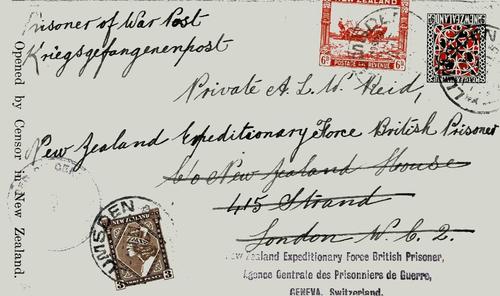 Prisoner of War Post
Kriegsgefangenenpost
Opened by Censor in New Zealand.
NEW ZEALAND
POSTAGE AND REVENUE
6D
Private A. L. W. Reid,
New Zealand Expeditionary Force British Prisoner
C/o New Zealand House
415 Strand
London W. C. 2.
LUMSDEN
NEW ZEALAND
3
New Zealand Expeditionary Force British Prisoner,
Agence Centrale des Prisonniers de Guerre,
GENEVA, Switzerland.